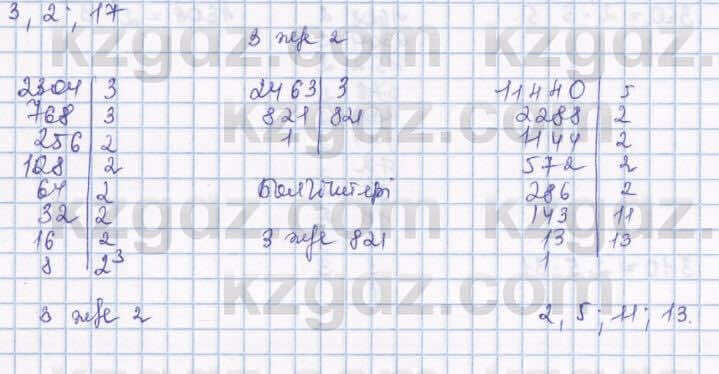 3, 2; 17
3 және 2
2304 | 3
768 | 3
256 | 2
128 | 2
64 | 2
32 | 2
16 | 2
8 | 2³
3 және 2
2463 | 3
821 | 821
1
Бөлгіштері
3 және 821
11440 | 5
2288 | 2
1144 | 2
572 | 2
286 | 2
143 | 11
13 | 13
1
2, 5; 11; 13.
kzgdz.com
kzgdz.com
kzgdz.com
kzgdz.com
kzgdz.com